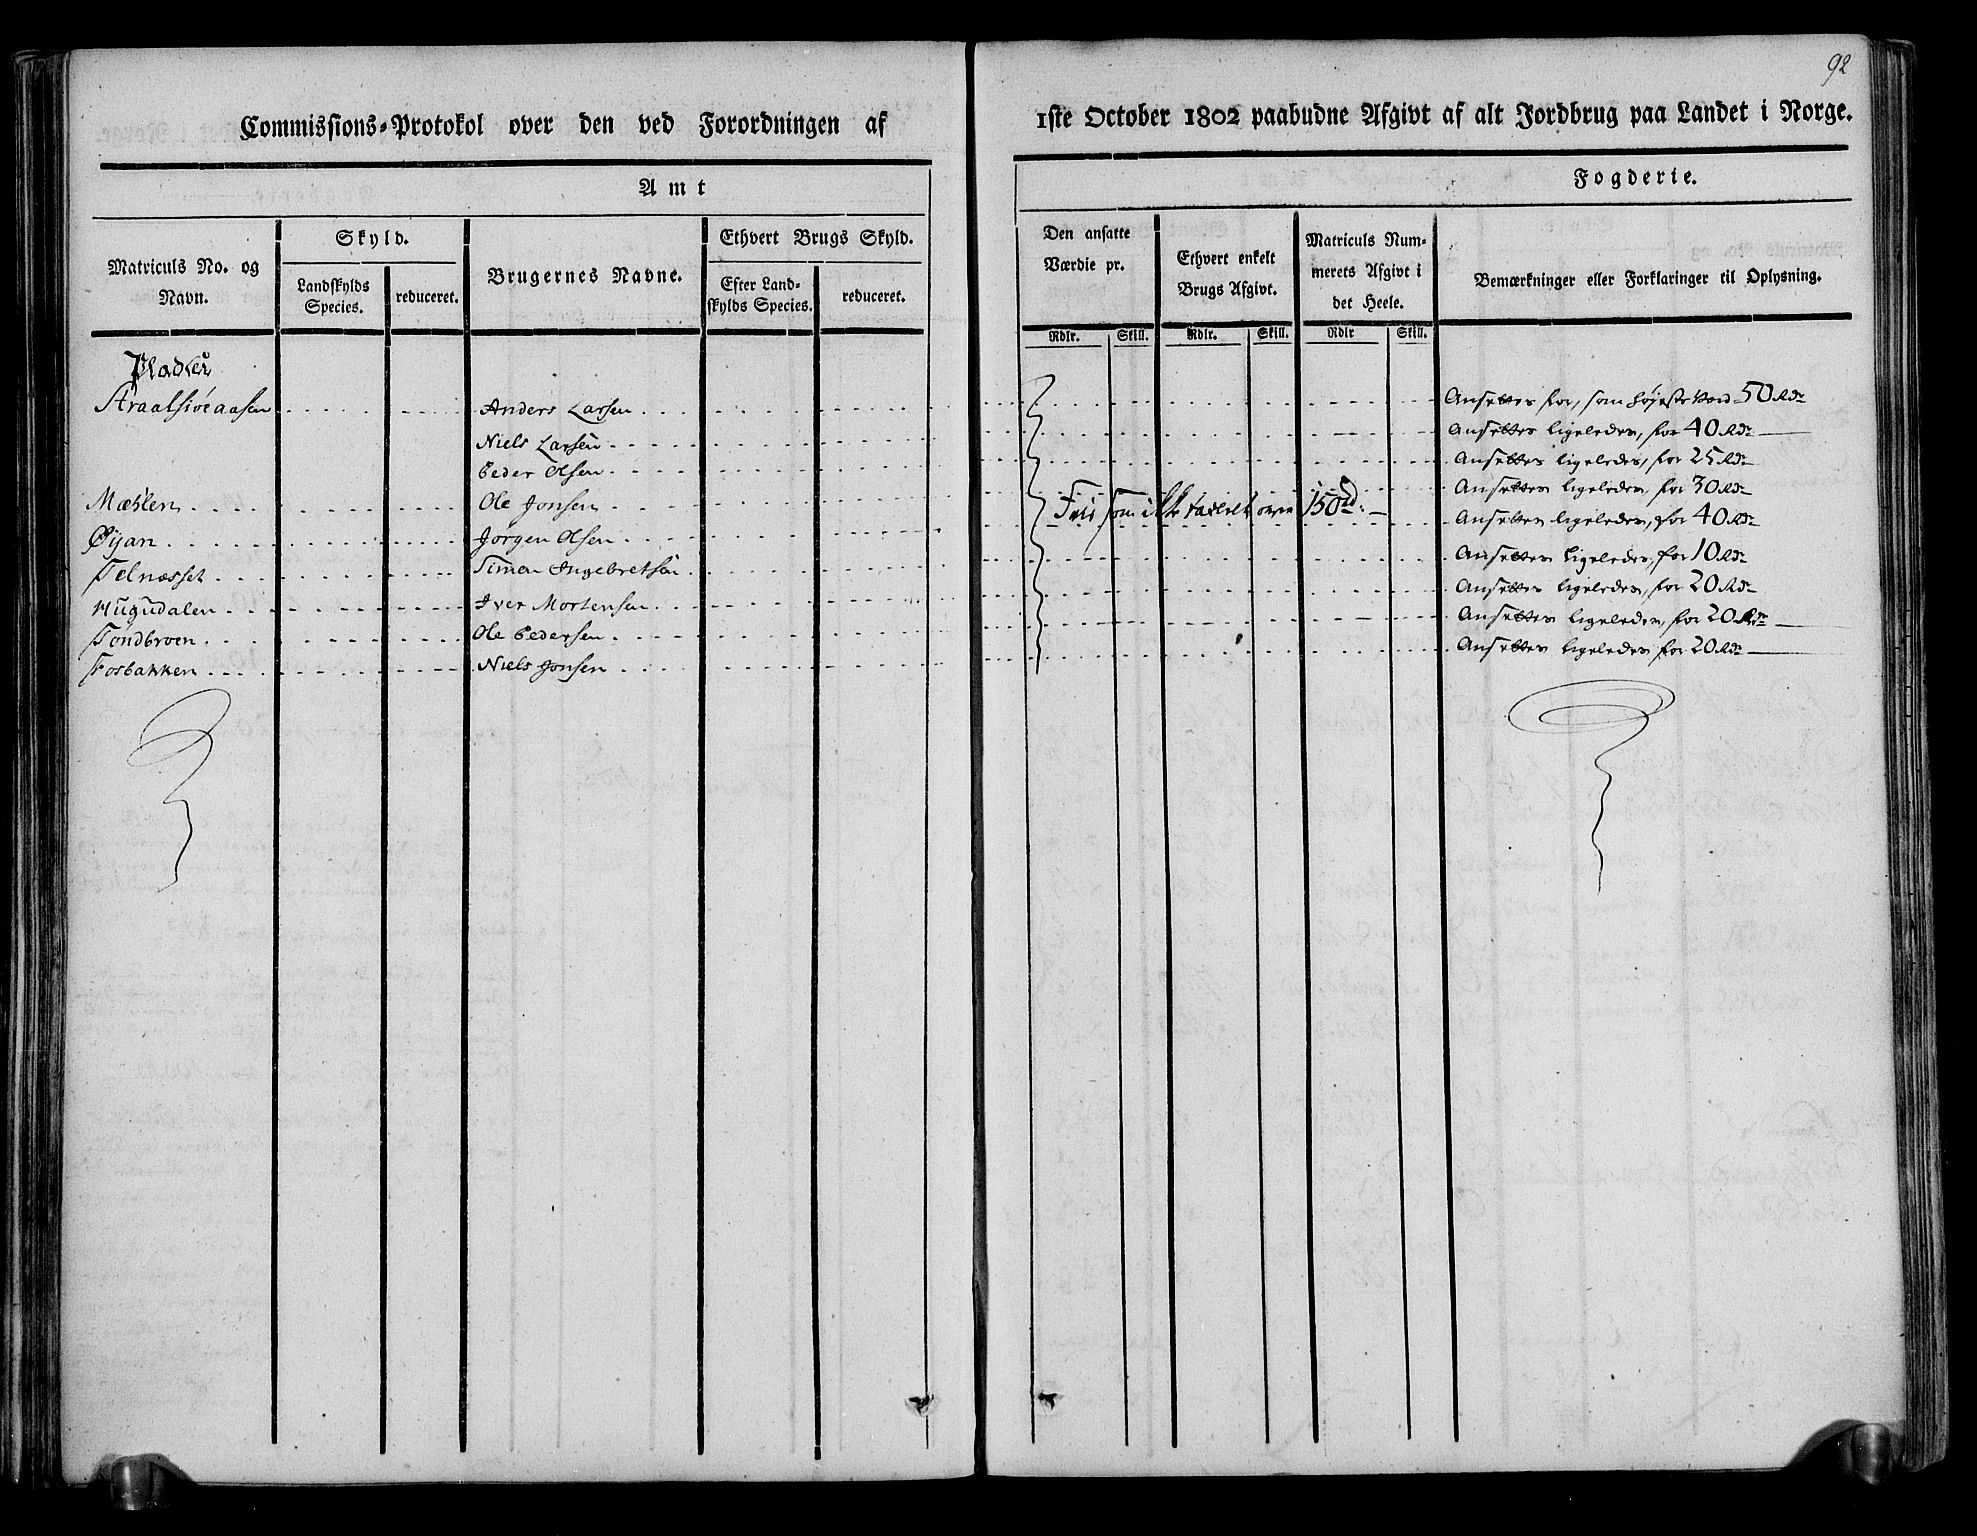 92
Commissions-Protokol over den ved Forordningen af 1ste October 1802 paabudne Afgivt af alt Jordbrug paa Landet i Norge.
Amt
Fogderie.
Matriculs No. og Navn.
Skyld.
Landskylds Species.
reduceret.
Brugernes Navne.
Ethvert Brugs Skyld.
Efter Landskylds Species.
reduceret.
Den ansatte Værdie pr.
Rdlr. Skill.
Ethvert enkelt Brugs Afgivt.
Rdlr. Skill.
Matriculs Nummerets Afgivt i det Heele.
Rdlr Skill.
Bemærkninger eller Forklaringer til Oplysning.
Pladser
Straalsiøeaasen Anders Larsen Ansettes for, som høyeste Værd 50 Rdr
Niels Larsen Ansettes ligeledes, for 40 Rdr
Peder Olsen Ansettes ligeledes, for 25 Rdr
Mæhlen Ole Jonsen Ansettes ligeledes, for 30 Rdr
Frii som ikke taxeret over 150 rd:
Øÿan Jørgen Olsen Ansettes ligeledes, for 40 Rdr
Telnæsset Simen Ingebretsen Ansettes ligeledes, for 10 Rdr
Hugudalen Iver Mortensen Ansettes ligeledes, for 20 Rdr
Tondbroen Ole Pedersen Ansettes ligeledes, for 20 Rdr
Fosbakken Niels Jonsen Ansettes ligeledes for 20 Rdr